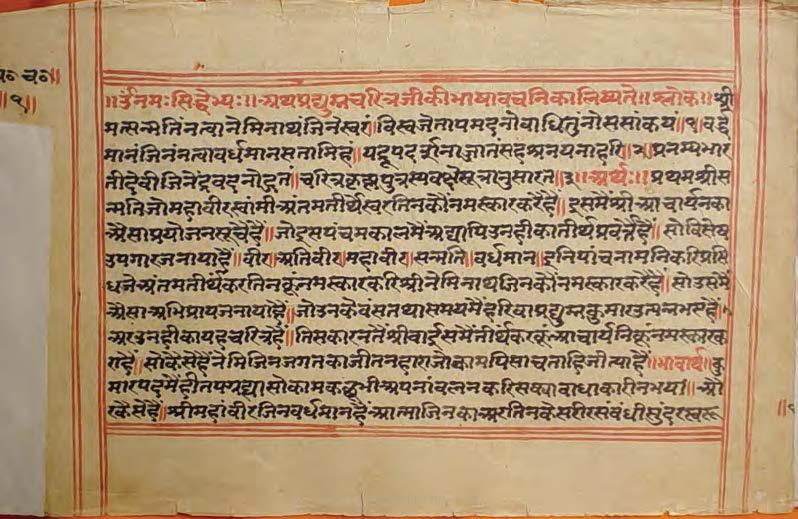 प्र॰ च॰॥
॥१॥
॥उँनमःसिद्धेभ्यः॥अथप्रद्युम्नचरित्रजीकीभाषावचनिकालिष्यते॥श्लोक॥श्री
मत्सन्मतिंनत्वानेमिनाथंजिनेस्वरं॥विस्वजेतापमदनोवाधितुंनोससाकयं॥१॥वर्द्ध
मानंजिनंनत्वावर्धमानसतामिहं॥यद्रूपदर्शनाज्जातंसहश्रनयनोहरि॥२॥प्रनम्यभार
तीदेवीजिनेंद्रवदनोद्गत॥चरित्रकृष्णपुत्रस्यवक्षेसूत्रानुसारते॥३॥अर्थः॥प्रथमश्रीस
न्मतिजोमहावीरस्वांमीअंतमतीर्थस्वरतिनकौनमस्कारकरैहैं॥इसमैश्रीआचार्यनका
अैसाप्रयोजनसूचेहैं॥जोइसपंचमकालमैंअद्यापिउनहीकातीर्थप्रवर्त्तैहैं॥सोविसेष
उपगारजनायाहैं॥वीर॥अतिवीर॥महावीर॥सन्मति॥वर्धमान॥इनिपांचनामनिकरिप्रसि
धजेअंतमतीर्थंकरतिनकूंनमस्कारकरिश्रीनेमिनाथजिनकौंनमस्कारकरैहैं॥सोउसमैं
अैसाअभिप्रायजनायाहैं॥जोउनकेवंसतथासमयमैंहरिवाप्रद्युम्नकुमारउत्पन्नभएहैं॥
अरउनहीकायहचरित्रहैं॥तिसकारनतैंश्रीवाईसमैंतीर्थंकरकूंआचार्यनिकूंनमस्कारक
राहैं॥सोकैसेहैंनेमिजिनजगतकाजीतनहाराजोकामपिसाचताहिजीत्याहैं॥भावार्थ॥कु
मारपदमैंहीतपग्रह्यासोकामकछुभीअपनांवलनकरिसक्यावाधाकारीनभया॥औ
रकैसेहैं॥श्रीमहांवीरजिनवर्धमानहैंआत्माजिनकाअरतिनकेसरीरसंवंधीसुंदरस्वरू